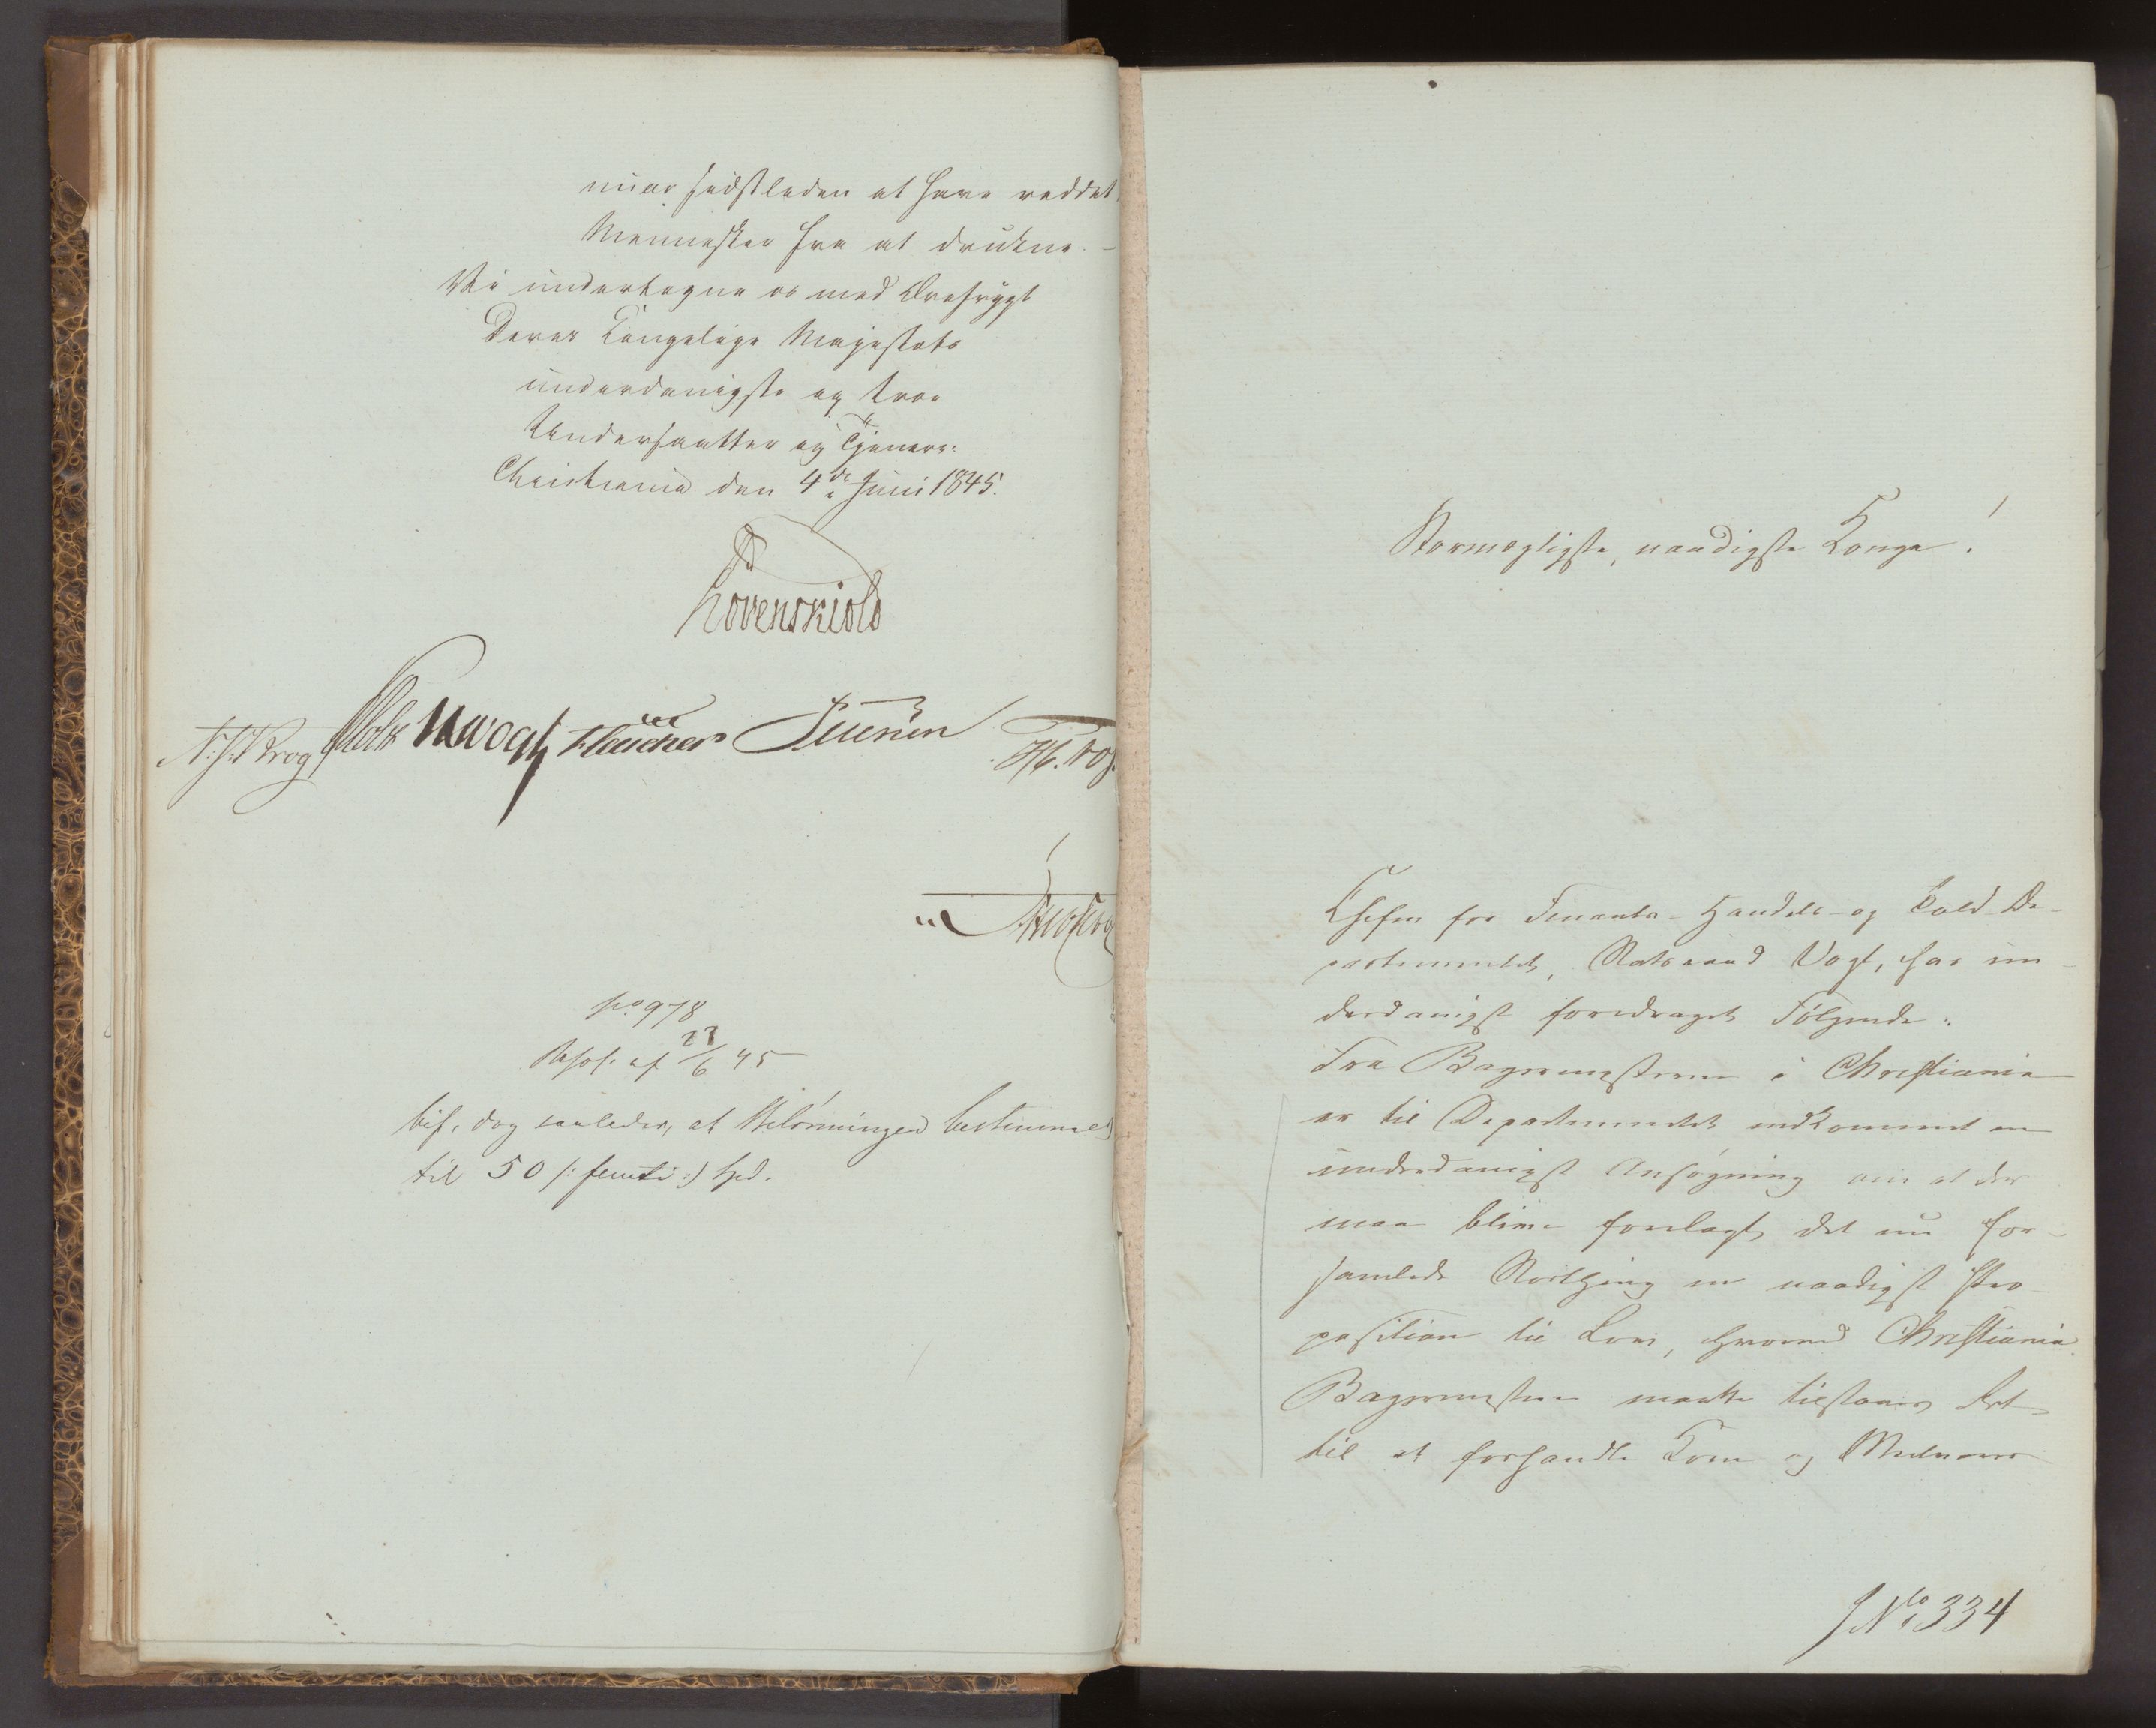 nuar sidstleden at have reddet
Mennesker fra at drukne. -
Vi undertegne os med Ærefrygt
Deres Kongelige Majestæts
underdanigste og troe
Undersaatter og Tjenere.
Christiania den 4de Juni 1845.
Løvenskiold
Krog Holst Vogt Fleischer Sibbern
No 978
Resol. af 23/6 45
bif., dog saaledes, at Belønningen bestemmes
til 50 /: femti :/ Spd.
Stormægtigste, naadigste Konge!
Chefen for Finants- Handels- og Told-De-
partementet, Statsraad Vogt, har un-
derdanigst foredraget Følgende:
Fra Bagermesterne i Christiania
er til Departementet indkommet en
underdanigst Ansøgning om at der
maa blive forelagt det nu for-
samlede Storthing en naadigst Pro-
position til Lov, hvorved Christiania
Bagermestere maatte tilstaaes Ret
til at forhandle Korn og Meelvarer
J No 334